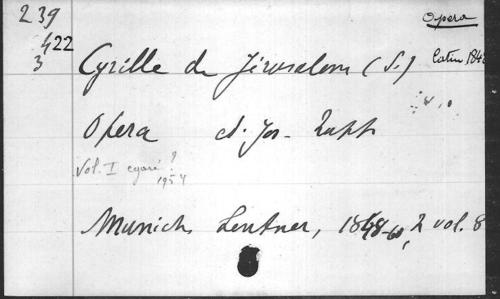 239
Opera
422
3
Cyrille de Jérusalem (S.)
Latin 1848
Opera ed. Jos. Rupp
Vol. I égaré ?
1954
Munich, Lentner, 1848-60, 2 vol. 8